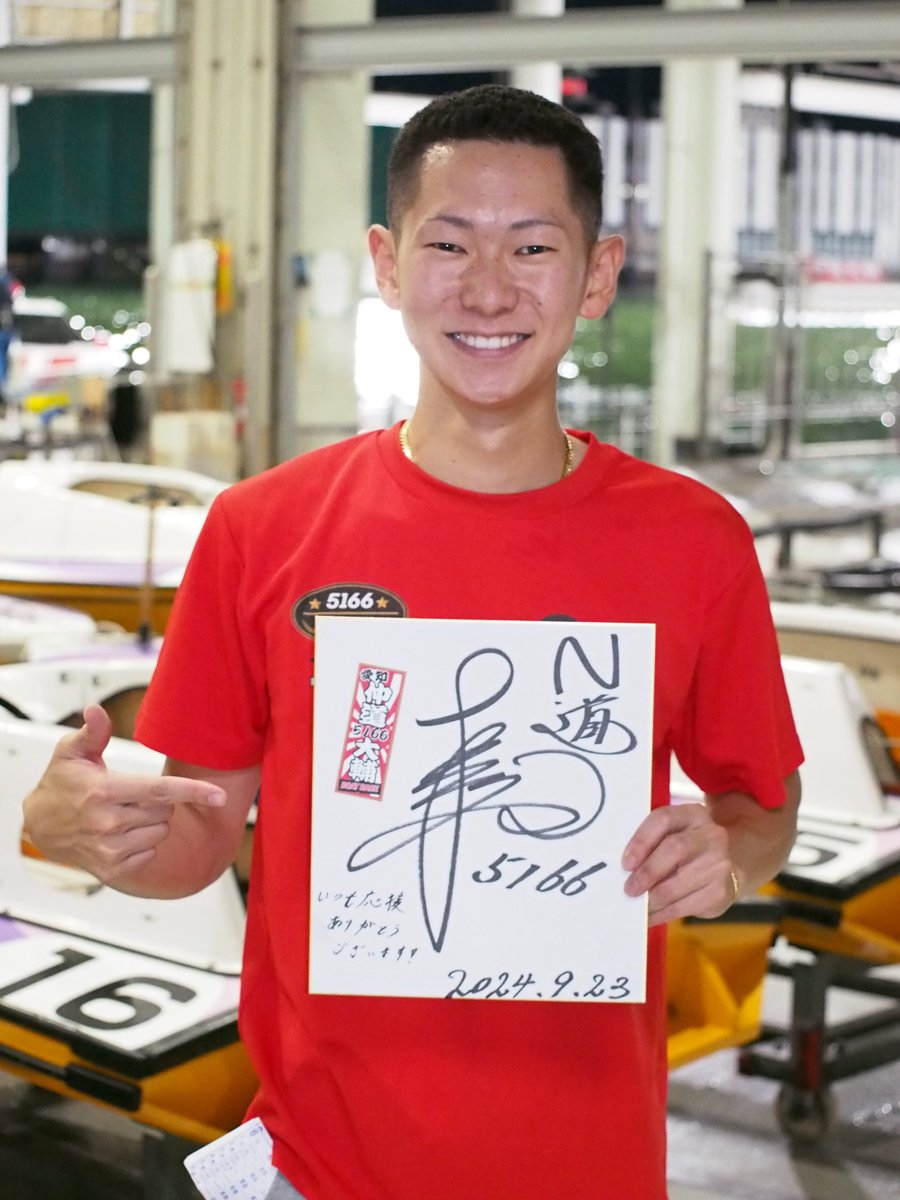 5166
愛知
仲道
5166
大輔
BOAT RACE
道
5166
いつも応援
ありがとう
ございます!
2024.9.23
16
5